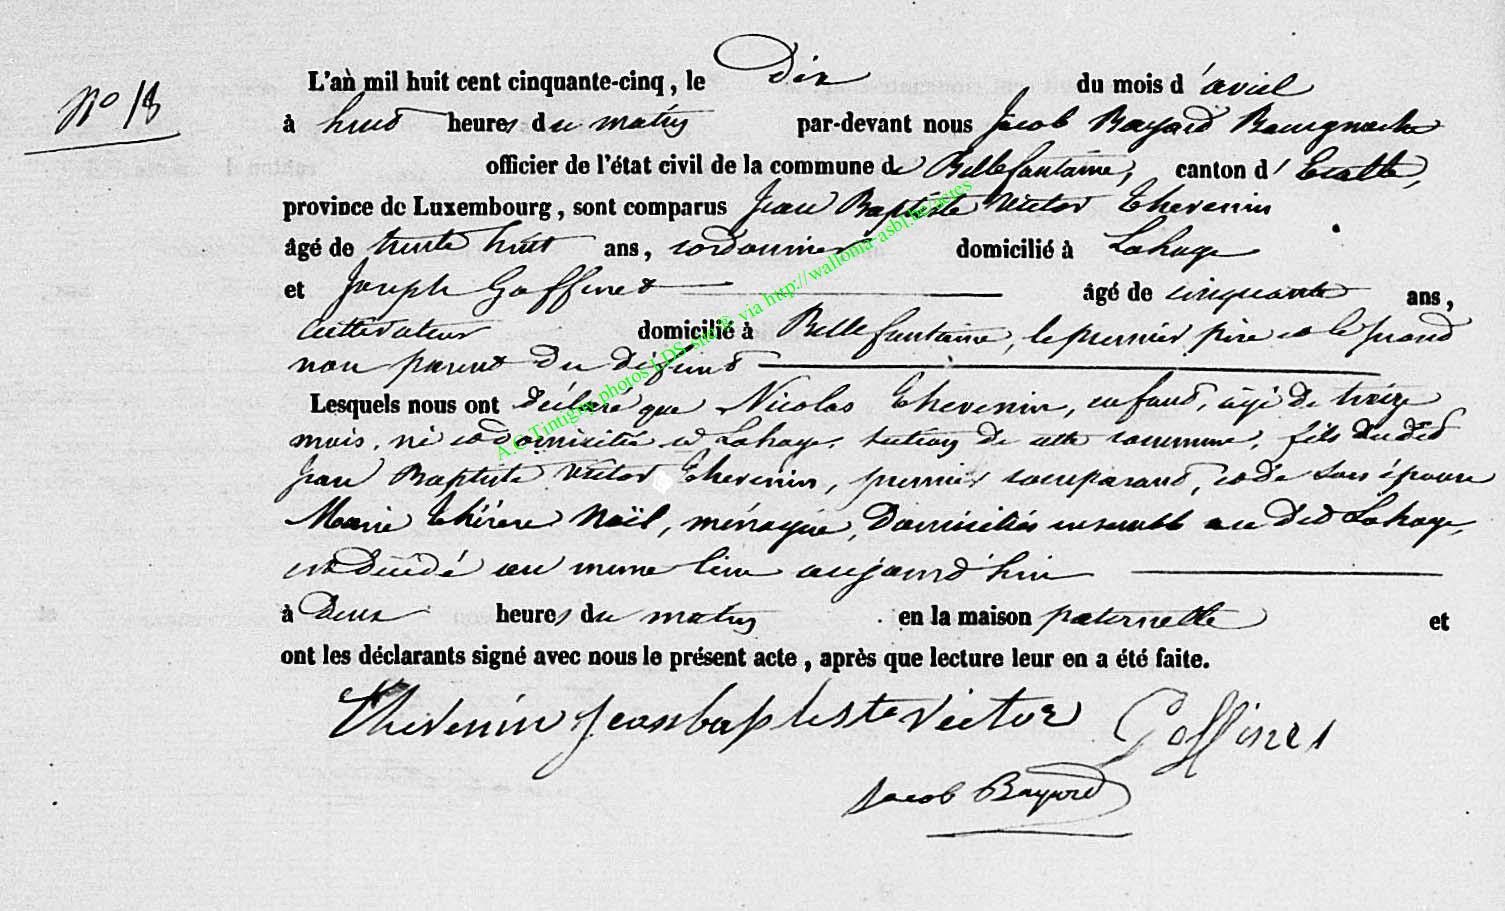 N° 13
L'an mil huit cent cinquante-cinq, le Dix du mois d'avril
à huit heures du matin par-devant nous Jacob Bayard Bourgmestre
officier de l'état civil de la commune de Bellefontaine, canton d'Etalle,
province de Luxembourg, sont comparus Jean Baptiste Victor Thevenin
âgé de trente huit ans, cordonnier domicilié à Lahage
et Joseph Goffinet âgé de cinquante ans,
cultivateur domicilié à Bellefontaine, le premier père et le second
non parent du défunt
Lesquels nous ont déclaré que Nicolas Thevenin, enfant, âgé de treize
mois, né et domicilié à Lahage, section de cette commune, fils dudit
Jean Baptiste Victor Thevenin, premier comparant, et de son épouse
Marie Thérèse Noël, ménagère, domiciliés ensemble au dit Lahage,
est décédé au même lieu aujourd'hui
à Deux heures du matin en la maison paternelle et
ont les déclarants signé avec nous le présent acte, après que lecture leur en a été faite.
Thevenin jeanbaptiste victor Goffinet
Jacob Bayard
A.C. Tintigny photos LDS site® via http://wallonia-asbl.be/astes